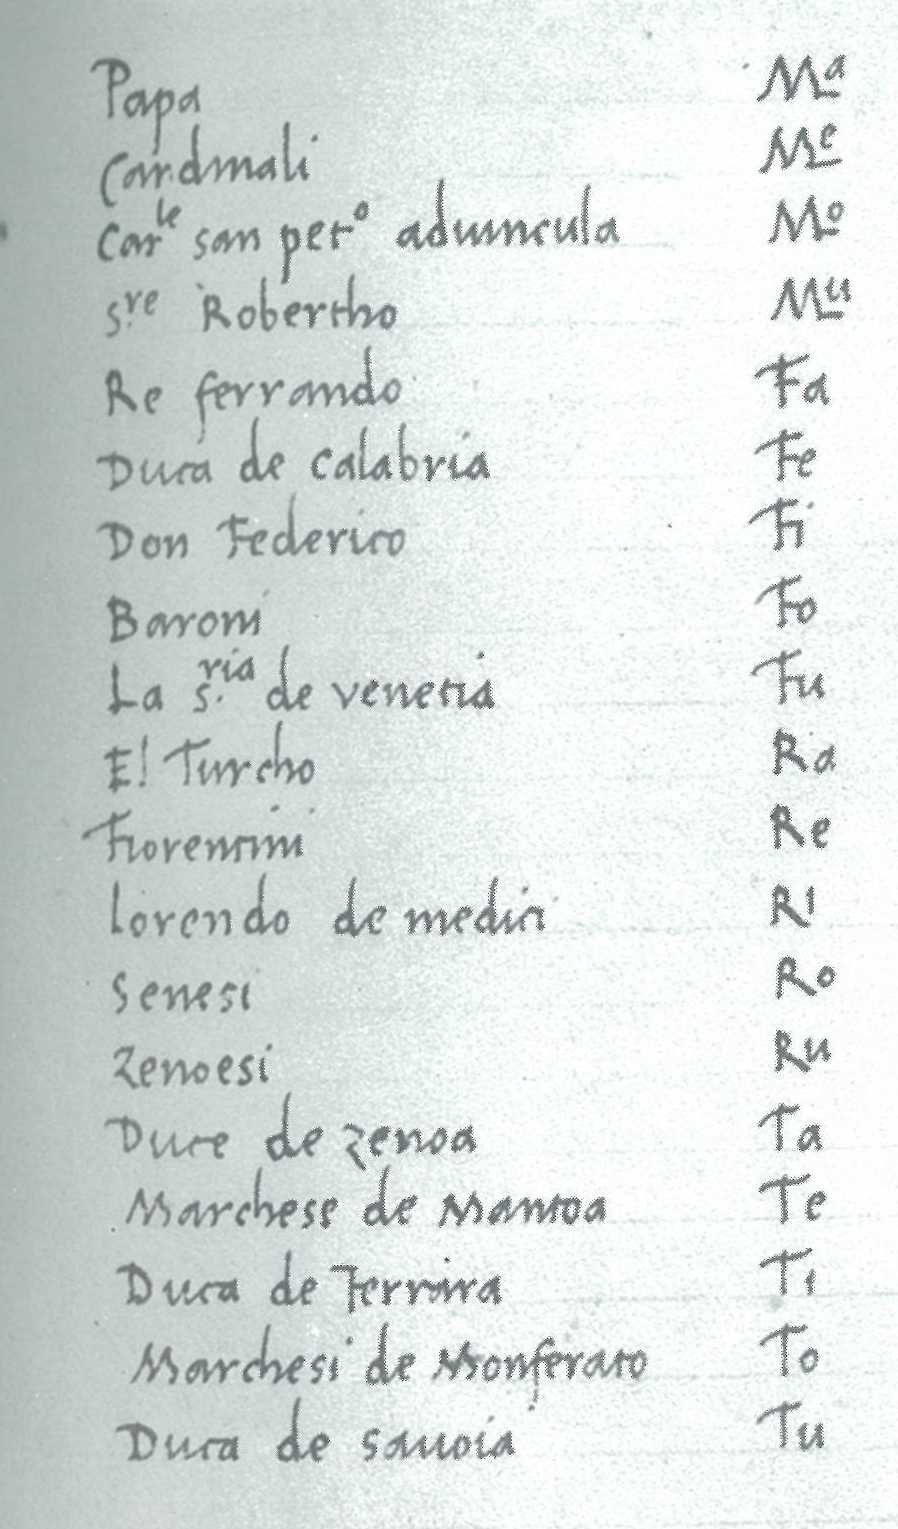 Papa Ma
Cardinali Me
Carle san pero aduincula Mo
s.re Robertho Mu
Re ferrando Fa
Duca de calabria Fe
Don Federico Fi
Baroni Fo
La s.ria de venetia Fu
El Turcho Ra
Fiorentini Re
Lorendo de medici Ri
Senesi Ro
Zenoesi Ru
Duce de zenoa Ta
Marchese de Mantoa Te
Duca de Ferrara Ti
Marchesi de Monferato To
Duca de sauoia Tu